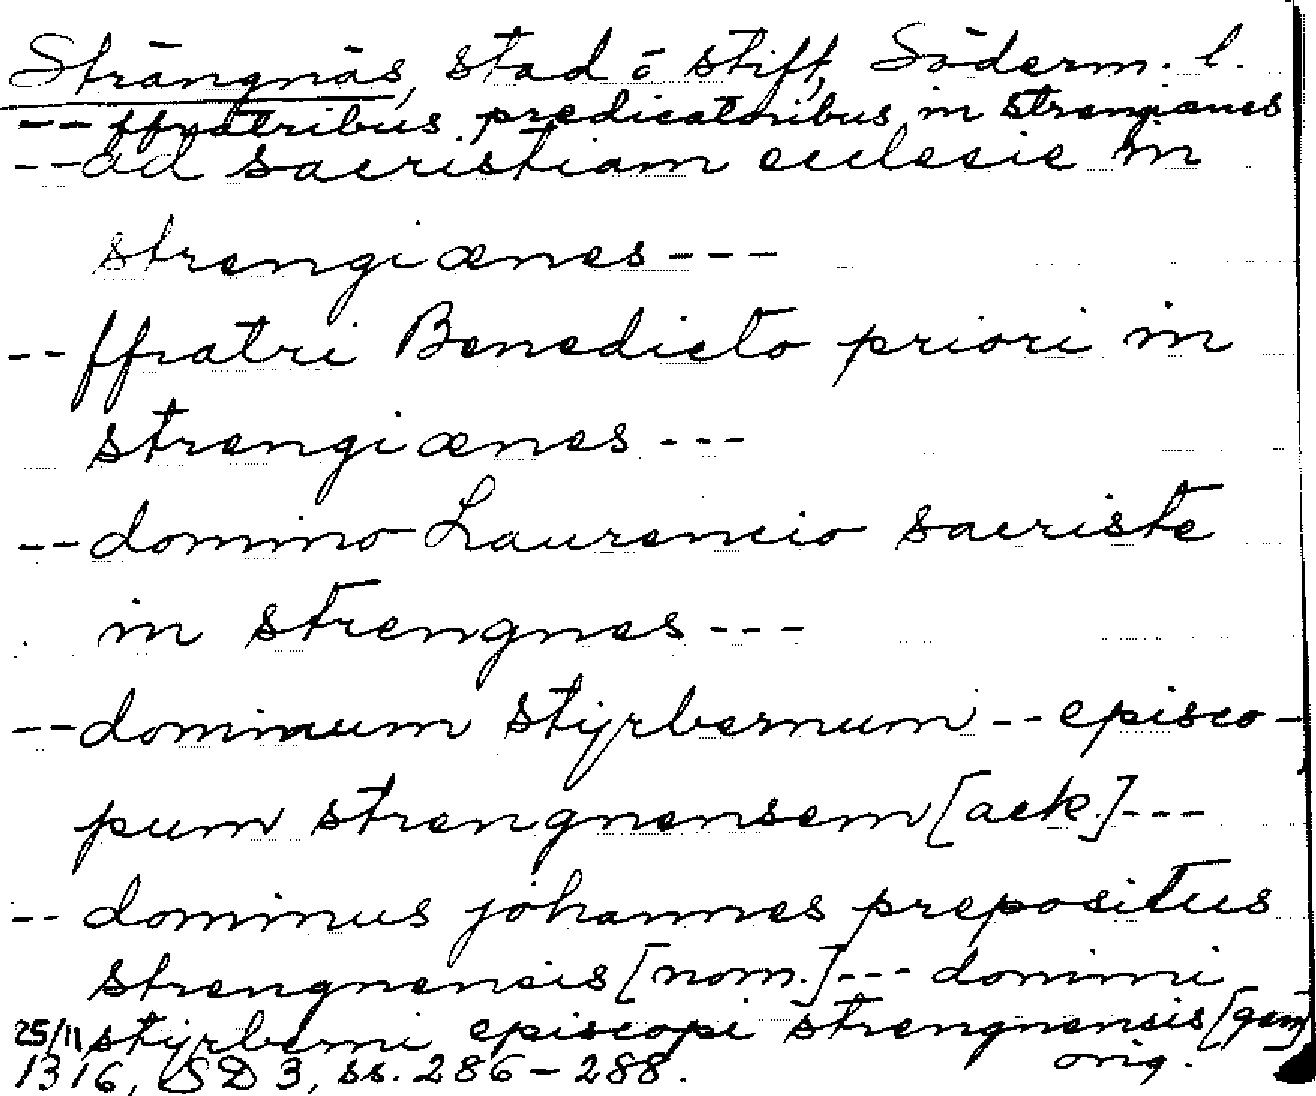 Strängnäs, stad o stift, Söderm. l.
-- ffratribus predicatoribus in strengianes
-- ad sacristiam ecclesie in
strengiænes ---
-- ffratri Benedicto priori in
strengiænes ---
-- domino Laurencio sacriste
in strengnes ---
-- dominum styrbernum -- episco-
pum strengnensem [ack.] ---
-- dominus johannes prepositus
strengnensis [nom.] --- domini
styrberni episcopi strengnensis [gen]
25/11 1316, SD 3, ss. 286-288. orig.